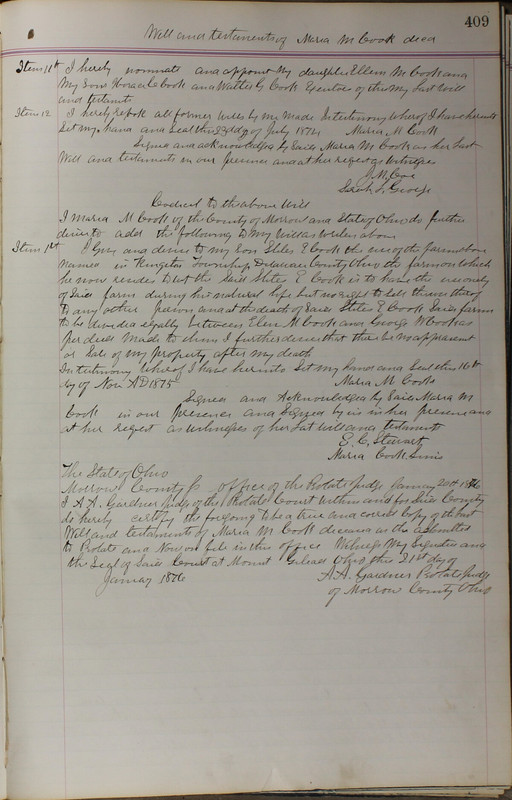 409
Will and testaments of Maria M Cook decd
Item 11th I hereby nominate and appoint my daughter Ellen M Cook and
my sons Horace Cook and Walter G Cook Executors of this my last will
and testamt
Item 12 I hereby revok all former wills by me made In testimony wherof I have hereunto
Set my hand and Seal this day of July 1874 Maria M Cook
Signed and acknowledged by Said Maria M Cook as her last
Will and testaments in our presence and at her request as witnesses
J M Coe
Sarah L
Codicil to the above Will
I Maria M Cook of the County of Morrow and State of Ohio do further
desire to add the following to my Will as written above
Item 1st I Give and devise to my Son Stiles E Cook the use of the farm above
named in Kingston Township Delaware County Ohio the farm on which
he now resides to wit the said Stiles E Cook is to have the use only
of Said farm during his natural life but no right to sell the use therof
to any other person and at the death of Said Stiles E Cook Said farm
to be devided eqally between Elen M Cook and George W Cook as
per deed made to them I further desire that ther be no appraisment
or Sale of my property after my death
In testimony wherof I have hereinto Set my hand and Seal this 16th
day of Nov AD 1875 Maria M Cook
Signed and Acknowledged by Said Maria M
Cook in our presence and Signed by us in her presence and
at her reqest as witnesses of her last will and testament
E. C. Stewart
Maria Cook
The State of Ohio
Morrow County Ss office of the Probate Judge January 20th 1876
I A A. Gardner Judge of the Probate Court within and for Said County
do hereby certify the forgoing to be a true and correct Copy of the last
Will and testaments of Maria M Cook deceased as the admitted
to Probate and Now on file in this office Witness My Signature and
the Seal of Said Court at Mount Gilead Ohio this 21st day of
January 1876 A. A. Gardner Probate Judge
of Morrow County Ohio